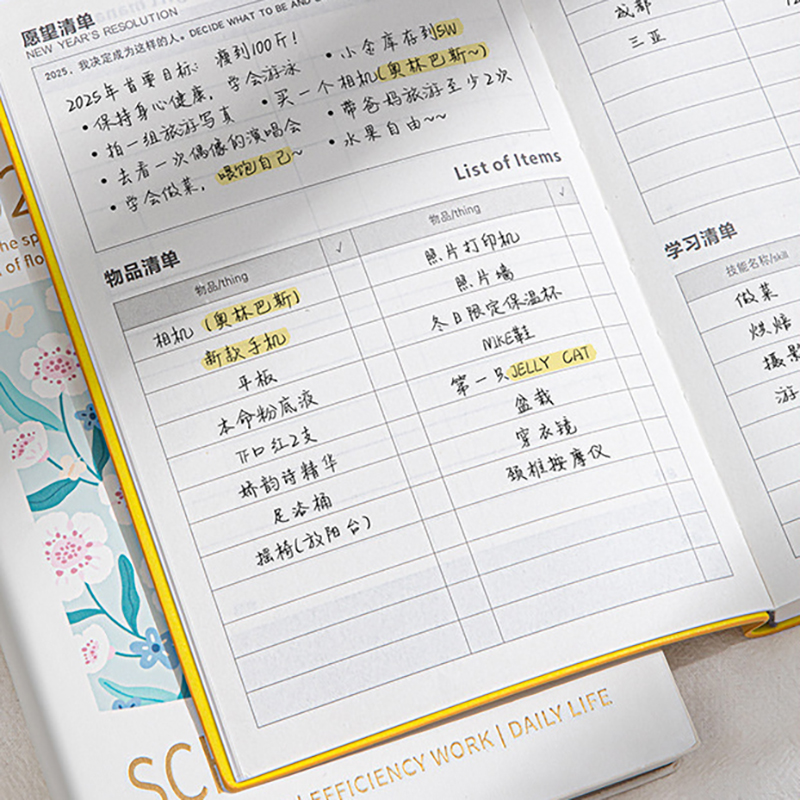 愿望清单
NEW YEAR'S RESOLUTION
2025, 我决定成为这样的人。DECIDE WHAT TO BE AND
2025年首要目标: 瘦到100斤!
• 保持身心健康, 学会游泳
• 拍一组旅游写真
• 去看一次偶像的演唱会
• 学会做菜, 喂饱自己~
• 小金库存到5W
• 买一个相机(奥林巴斯~)
• 带爸妈旅游至少2次
• 水果自由~~
List of Items
物品清单
物品/thing ✓
相机 (奥林巴斯)
新款手机
平板
本命粉底液
TF口红2支
娇韵诗精华
足浴桶
摇椅(放阳台)
物品/thing ✓
照片打印机
照片墙
冬日限定保温杯
NIKE鞋
第一只JELLY CAT
盆栽
穿衣镜
颈椎按摩仪
成都
三亚
学习清单
技能名称/skill
做菜
烘焙
摄影
游
EFFICIENCY WORK | DAILY LIFE